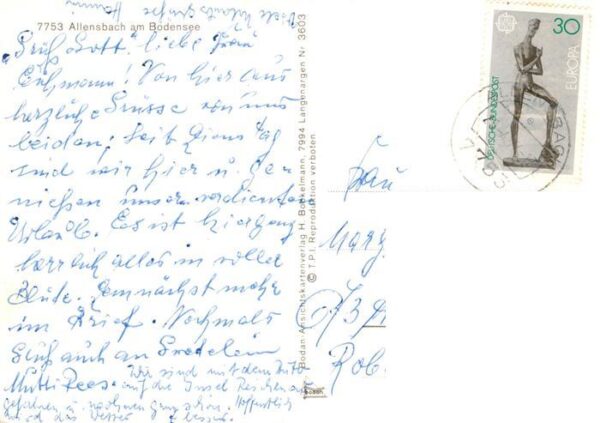 7753 Allensbach am Bodensee
Grüß Gott! liebe Frau
! Von hier aus
herzliche Grüsse von uns
beiden. Seit Tag
sind wir hier u. ge-
nießen unseren verdienten
Urlaub. Es ist hier ganz
herrlich alles in voller
Blüte. Demnächst mehr
im Brief. Nochmals
Gruß auch an
Mutti Rees. Wir sind mit dem
auf die Insel Reichenau
gefahren u. ganz schön. Hoffentlich
wird das Wetter besser.
Bodan-Ansichtskartenverlag H. Bockelmann, 7994 Langenargen Nr 3603
© T.P.I. Reproduktion verboten
30
EUROPA
DEUTSCHE BUNDESPOST
Frau
Marg
Rob